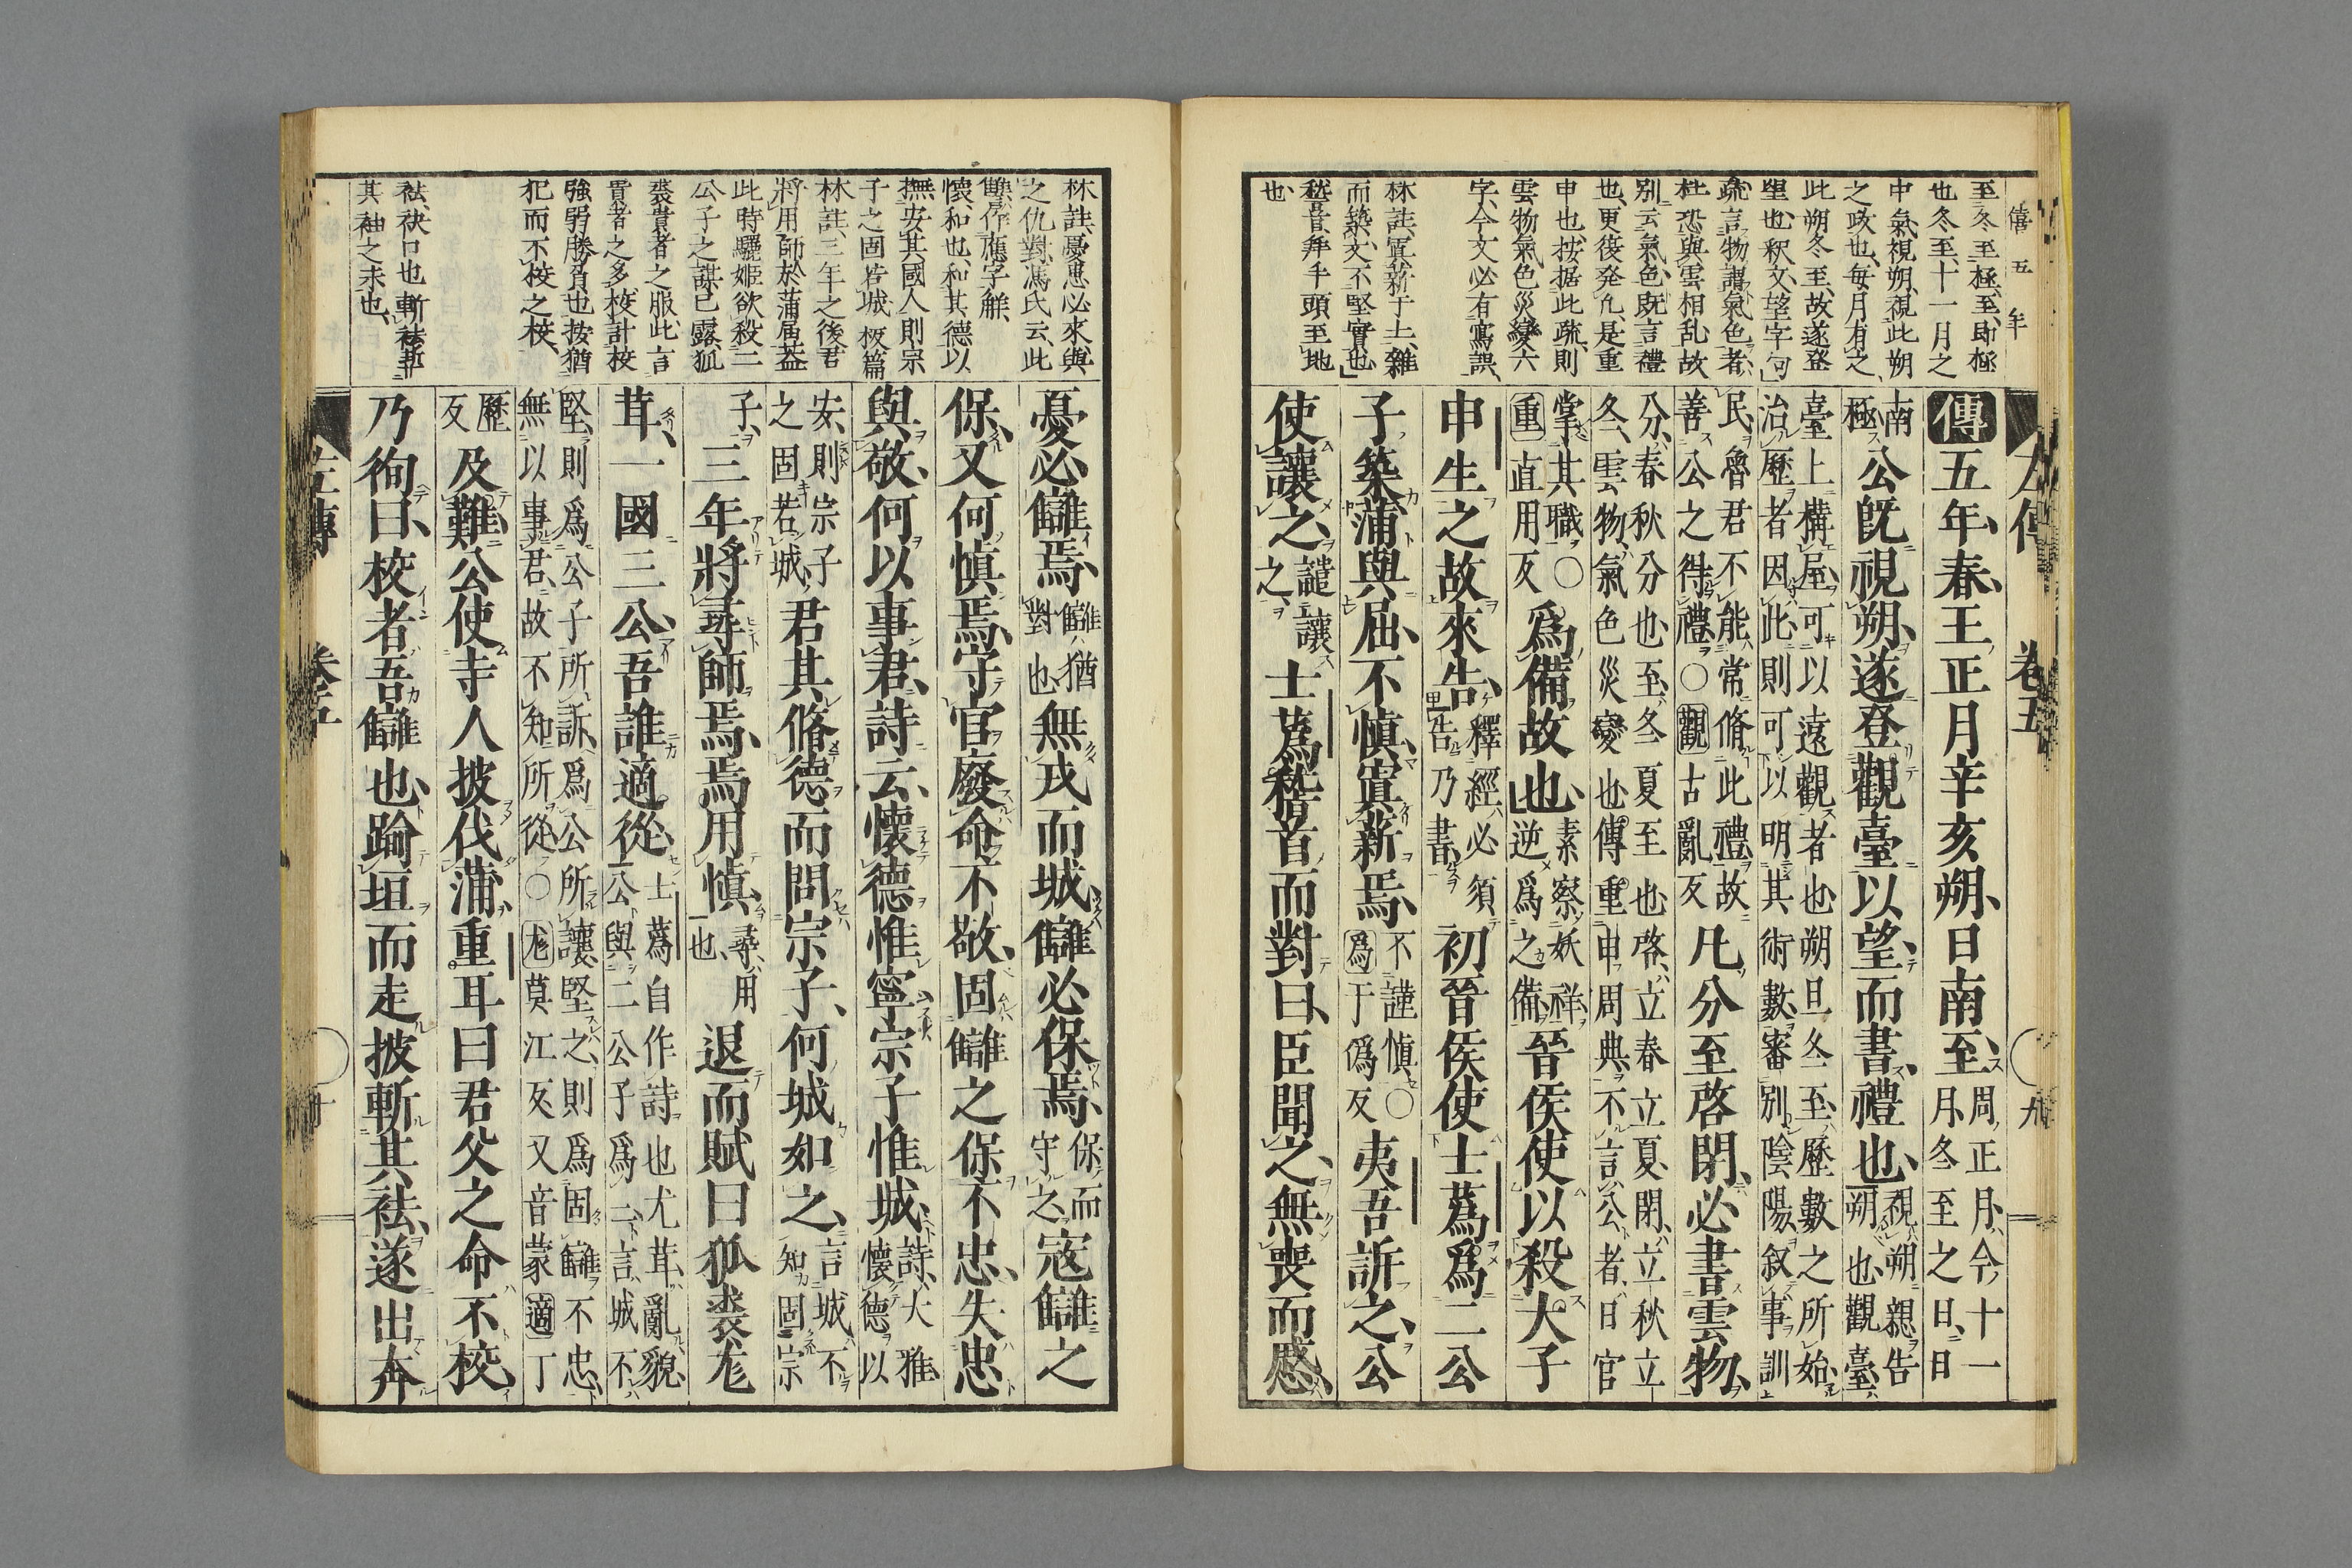 僖五年
左傳 卷五 九
至冬至極、至、即極
也冬至、十一月之
中氣視朔、視此朔
之政也、每月有之、
此朔冬至、故遂登
望也、釈文、望字句、
疏言物謂氣色者、
杜恐與雲相乱故
別云氣色、既言禮
也、更復発凡、是重
申也、按据此疏、則
雲物氣色災變六
字、今文必有寫誤、
林註、寘薪于土、雜
而築、又不堅實也
稽首拜手頭至地
也
傳五年、春、王正月辛亥朔、日南至、周正月、今十一月、冬至之日、日
南極公既視朔、遂登觀臺以望、而書、禮也、視朔、親告朔也、觀臺、
臺上構屋、可以遠觀者也、朔旦冬至、歷數之所始、治歷者因此則可以明其術數、審別陰陽、叙事訓
民、魯君不能常脩此禮、故善公之得禮○觀古亂反凡分至啓閉、必書雲物、
分、春秋分也、至、冬夏至也、啓、立春立夏、閉、立秋立冬、雲物、氣色災變也、傳重申周典、不言公者、日官
掌其職○重直用反爲備故也、素察妖祥、逆爲之備晉侯使以殺大子
申生之故來告、釋經必須告乃書初晉侯使士蔿爲二公
子築蒲與屈、不慎、寘薪焉、不謹慎○爲于僞反夷吾訴之、公
使讓之、譴讓之、士蔿稽首而對曰、臣聞之、無喪而慼、
林註、憂思必來與
之仇對、馮氏云、此
讎作應字解、
懷、和也、和其德以
撫安其國人、則宗
子之固若城 板篇
林註、三年之後君
將用師於蒲屈蓋
此時驪姬欲殺二
公子之謀已露、狐
裘貴者之服、此言
貴者之多、校計校
強弱勝負也、按猶
犯而不校之校、
袪、袂口也 斬袪、非
其袖之末也、
憂必讎焉、讎猶對也無戎而城、讎必保焉、保而守之寇讎之
保、又何慎焉、守官廢命不敬、固讎之保不忠、失忠
與敬、何以事君、詩云、懷德惟寧宗子惟城、詩、大雅、懷德以
安、則宗子之固若城、君其脩德而固宗子、何城如之、言城不如固宗
子、三年將尋師焉、焉用慎、尋、用也、退而賦曰狐裘尨
茸、一國三公、吾誰適從、士蔿自作詩也尨茸、亂貌、公與二公子爲三、言城不
堅、則爲公子所訴、爲公所讓、堅之、則爲固讎不忠、無以事君、故不知所從○尨莫江反又音蒙適丁
歷反及難、公使寺人披伐蒲、重耳曰君父之命不校、
乃徇曰、校者吾讎也、踰垣而走披斬其袪、遂出奔
左傳 卷五 十